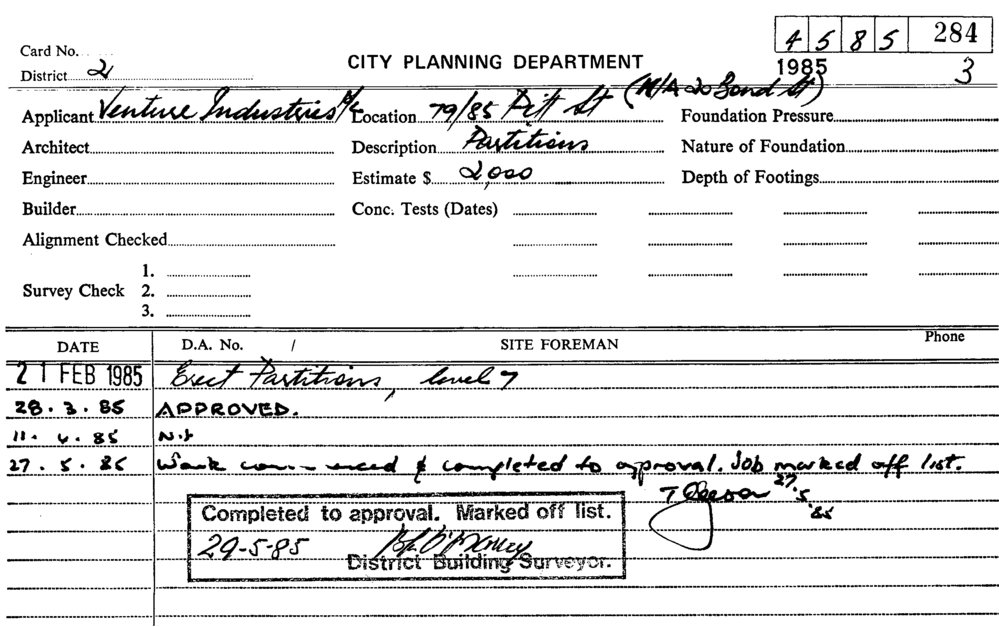 4585 284
Card No.
CITY PLANNING DEPARTMENT
District 2
1985 3
(N/A 20 Bond St)
Applicant Venture Industries P/L Location 79/85 Pitt St Foundation Pressure
Architect Description Partitions Nature of Foundation
Engineer Estimate $ 2,000 Depth of Footings
Builder Conc. Tests (Dates)
Alignment Checked
1.
Survey Check 2.
3.
DATE D.A. No. / SITE FOREMAN Phone
21 FEB 1985 Erect Partitions, level 7
28.3.85 APPROVED.
11.4.85
27.5.85 Work commenced & completed to approval. Job marked off list.
27.5.85
Completed to approval. Marked off list.
29-5-85
District Building Surveyor.